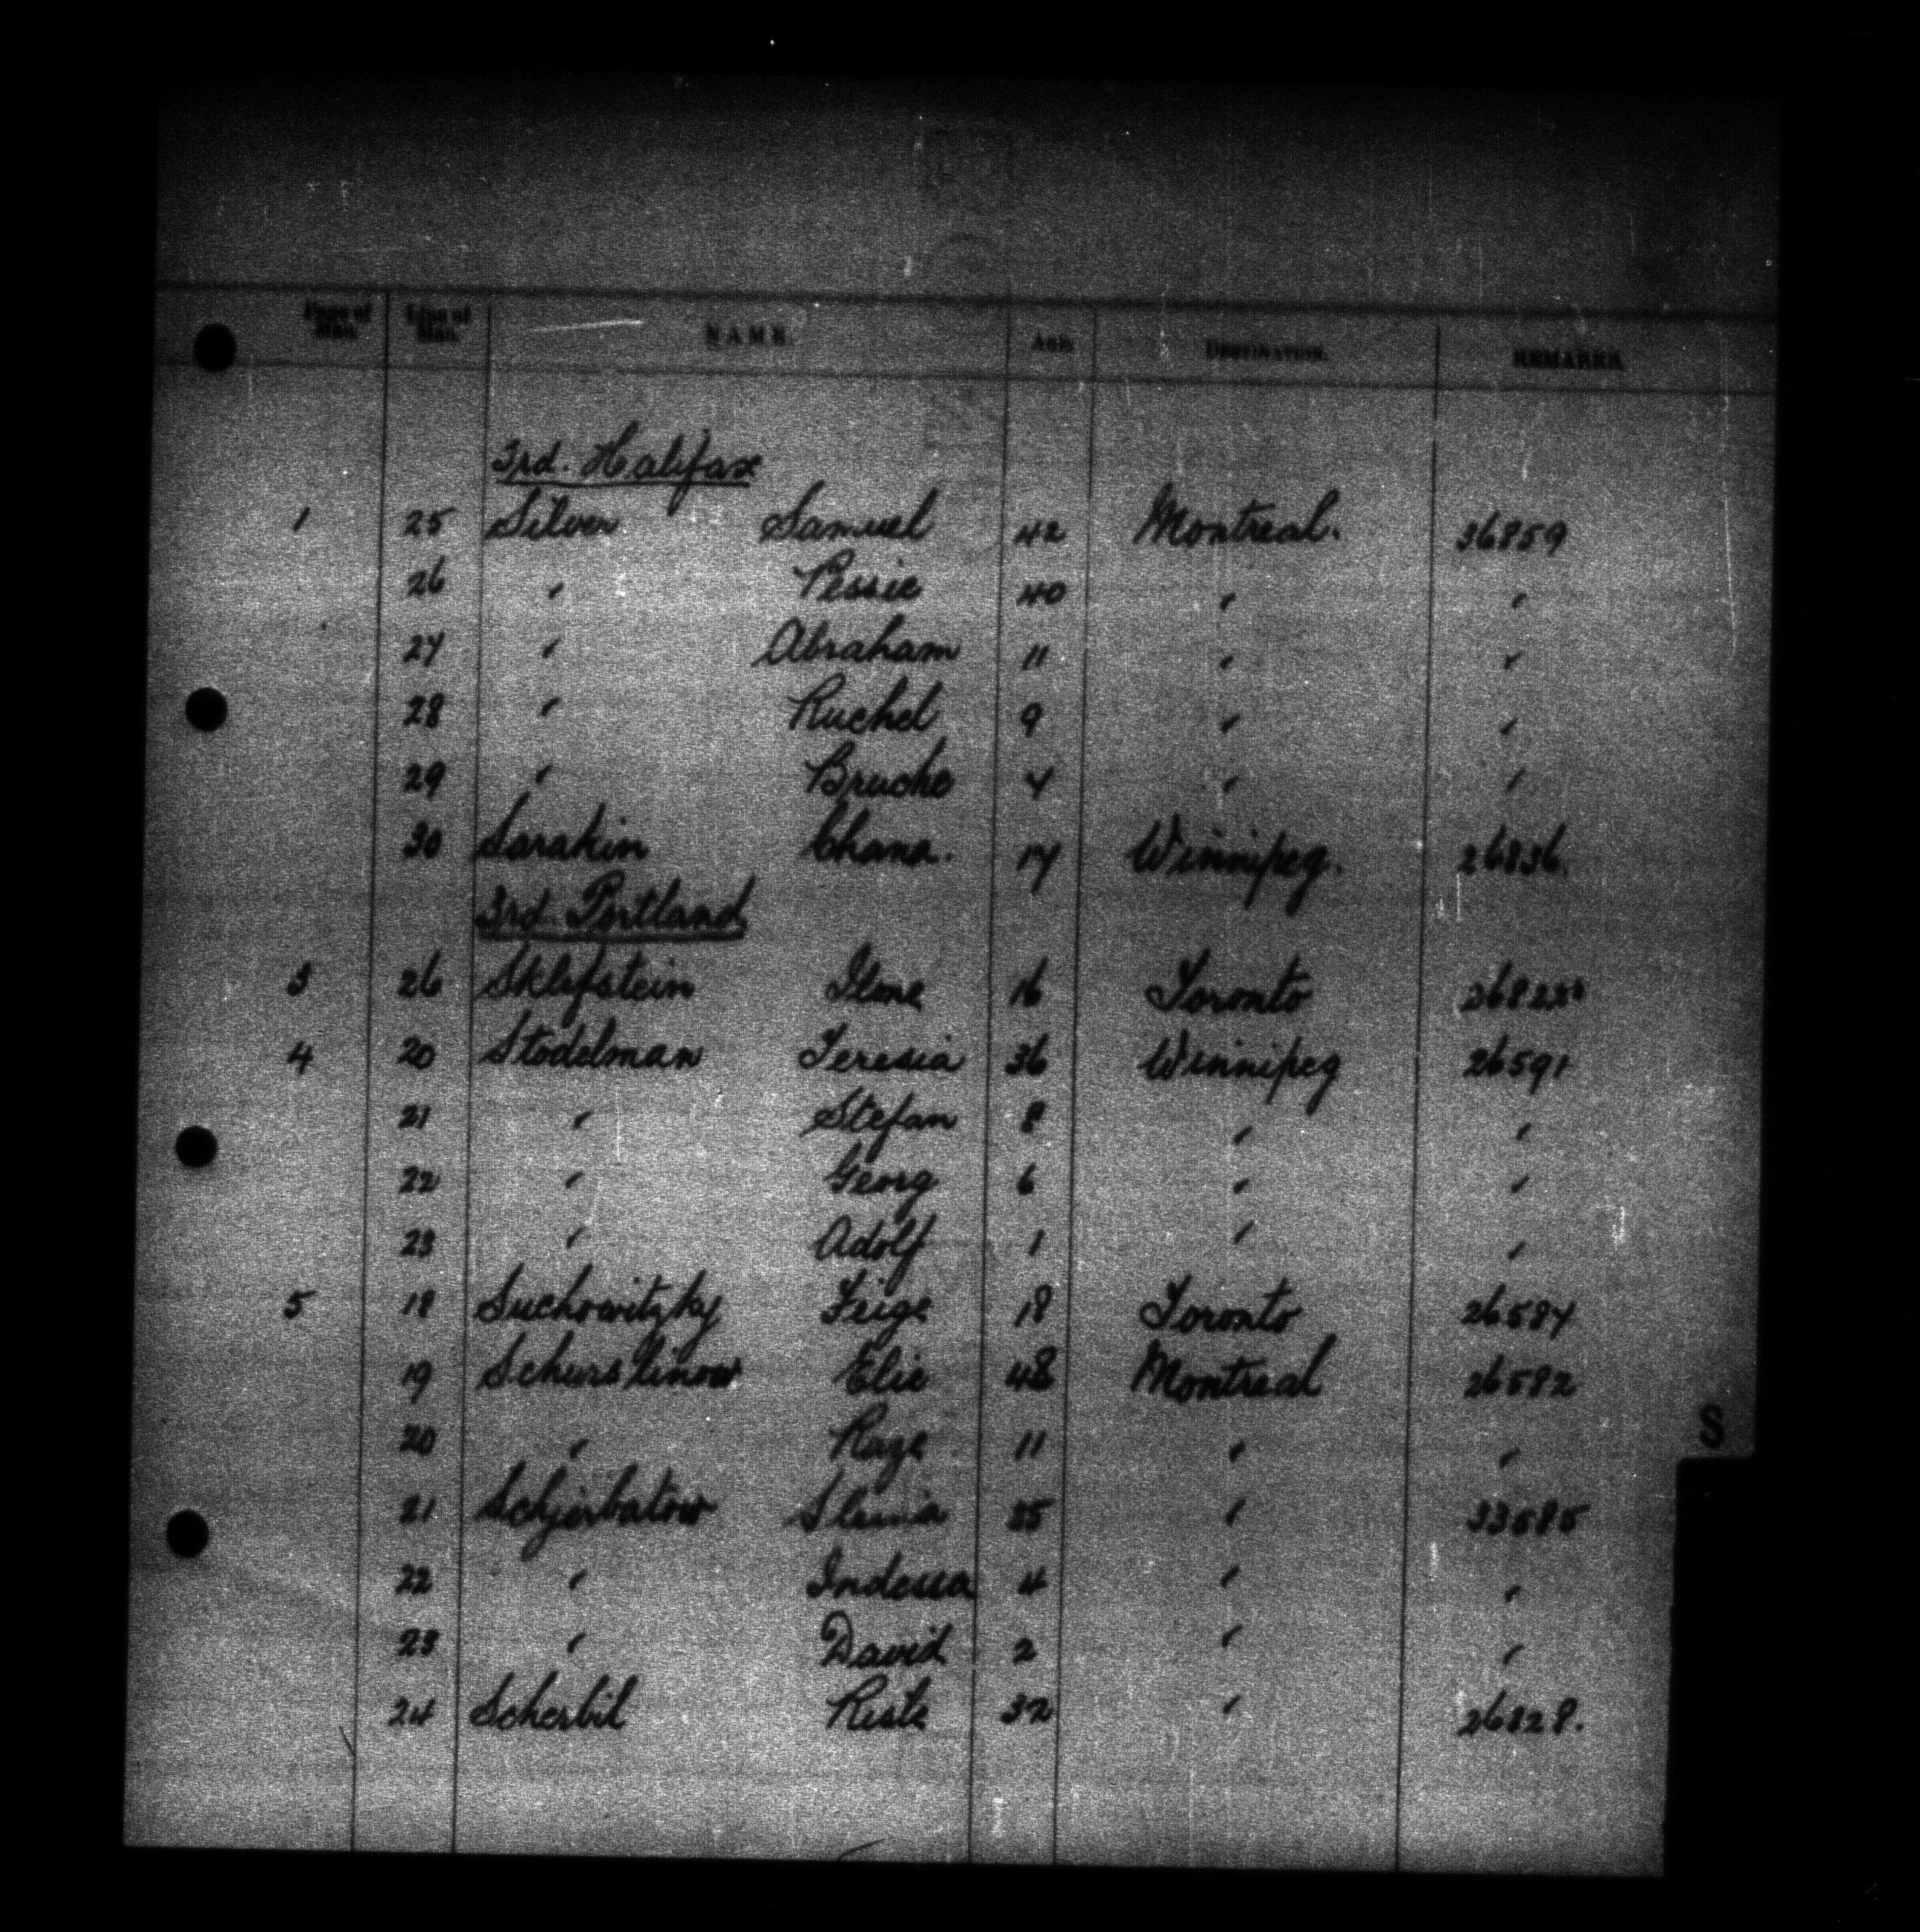 Page of Man. Line of Man. NAME. AGE. DESTINATION. REMARKS
3rd. Halifax
1 25 Silver Samuel 42 Montreal. 36859
26 " Pessie 40 " "
27 " Abraham 11 " "
28 " Ruchel 9 " "
29 " Bruche 4 " "
30 Sarakin Chana. 17 Winnipeg. 26836.
3rd. Portland
3 26 Sklefstein 16 Toronto
4 20 Stodelman Teresia 36 Winnipeg 26591
21 " Stefan 8 " "
22 " Georg 6 " "
23 " Adolf 1 " "
5 18 Suchowitzky Feige 18 Toronto 26584
19 Elie 48 Montreal 26582
20 " 11 " "
21 Schjerbatow 35 " 33585
22 " Indessa 4 " "
23 " David 2 " "
24 Scherbil 32 " 26828.
S